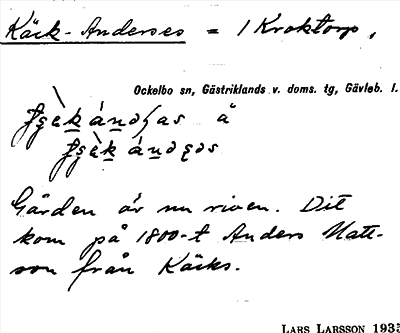 Käck-Anderses = 1 Kroktorp,
Ockelbo sn, Gästriklands v. doms. tg, Gävleb. l.
å
Gården är nu riven. Dit
kom på 1800-t Anders Matt-
son från Käcks.
LARS LARSSON 1935